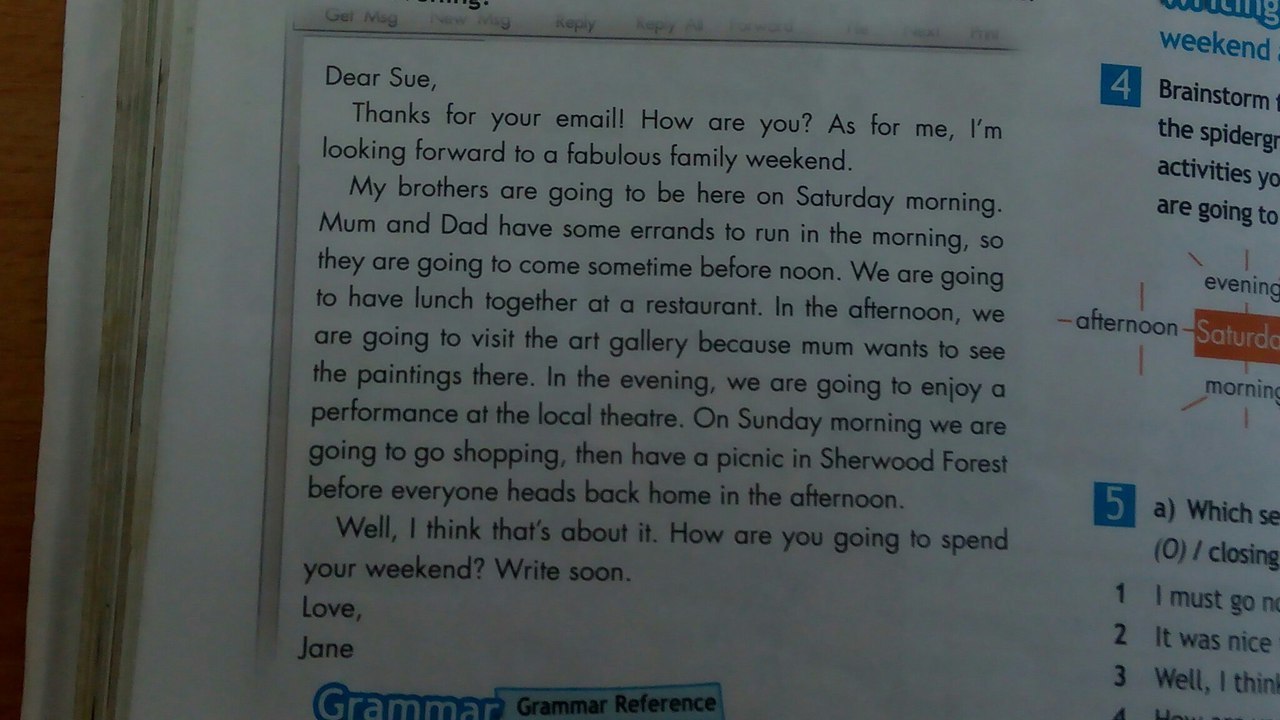 Get Msg New Msg Reply Reply All Forward File Next Print
Dear Sue,
Thanks for your email! How are you? As for me, I'm
looking forward to a fabulous family weekend.
My brothers are going to be here on Saturday morning.
Mum and Dad have some errands to run in the morning, so
they are going to come sometime before noon. We are going
to have lunch together at a restaurant. In the afternoon, we
are going to visit the art gallery because mum wants to see
the paintings there. In the evening, we are going to enjoy a
performance at the local theatre. On Sunday morning we are
going to go shopping, then have a picnic in Sherwood Forest
before everyone heads back home in the afternoon.
Well, I think that's about it. How are you going to spend
your weekend? Write soon.
Love,
Jane
Grammar Grammar Reference
weekend
4 Brainstorm
the spidergr
activities yo
are going to
evening
afternoon Saturda
morning
5 a) Which se
(O) / closing
1 I must go no
2 It was nice
3 Well, I think
4